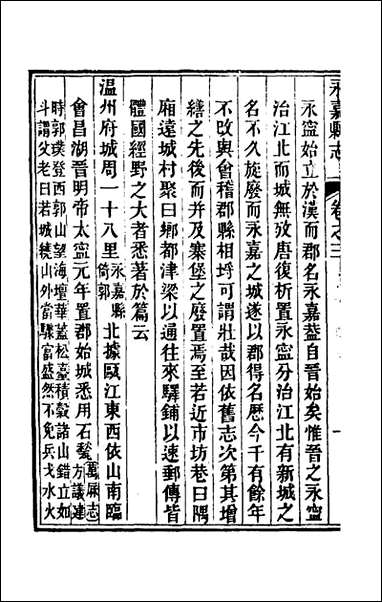 永嘉縣志 卷之三 一
永寧始立於漢而郡名永嘉葢自晉始矣惟晉之永寧
治江北而城無攷唐復析置永寧分治江北有新城之
名不久旋廢而永嘉之城遂以郡得名歷今千有餘年
不改與會稽郡縣相埒可謂壯哉因依舊志次第其增
繕之先後而并及寨堡之廢置焉至若近市坊巷曰隅
廂遠城村聚曰鄉都津梁以通往來驛鋪以速郵傳皆
體國經野之大者悉著於篇云
温州府城周一十八里永嘉縣倚郭北據甌江東西依山南臨
會昌湖晉明帝太寧元年置郡始城悉用石甃萬厯志方議建
時郭璞登西郭山望海壇華葢松臺積穀諸山錯立如
斗謂父老曰若城繞山外當驟富盛然不免兵戈水火